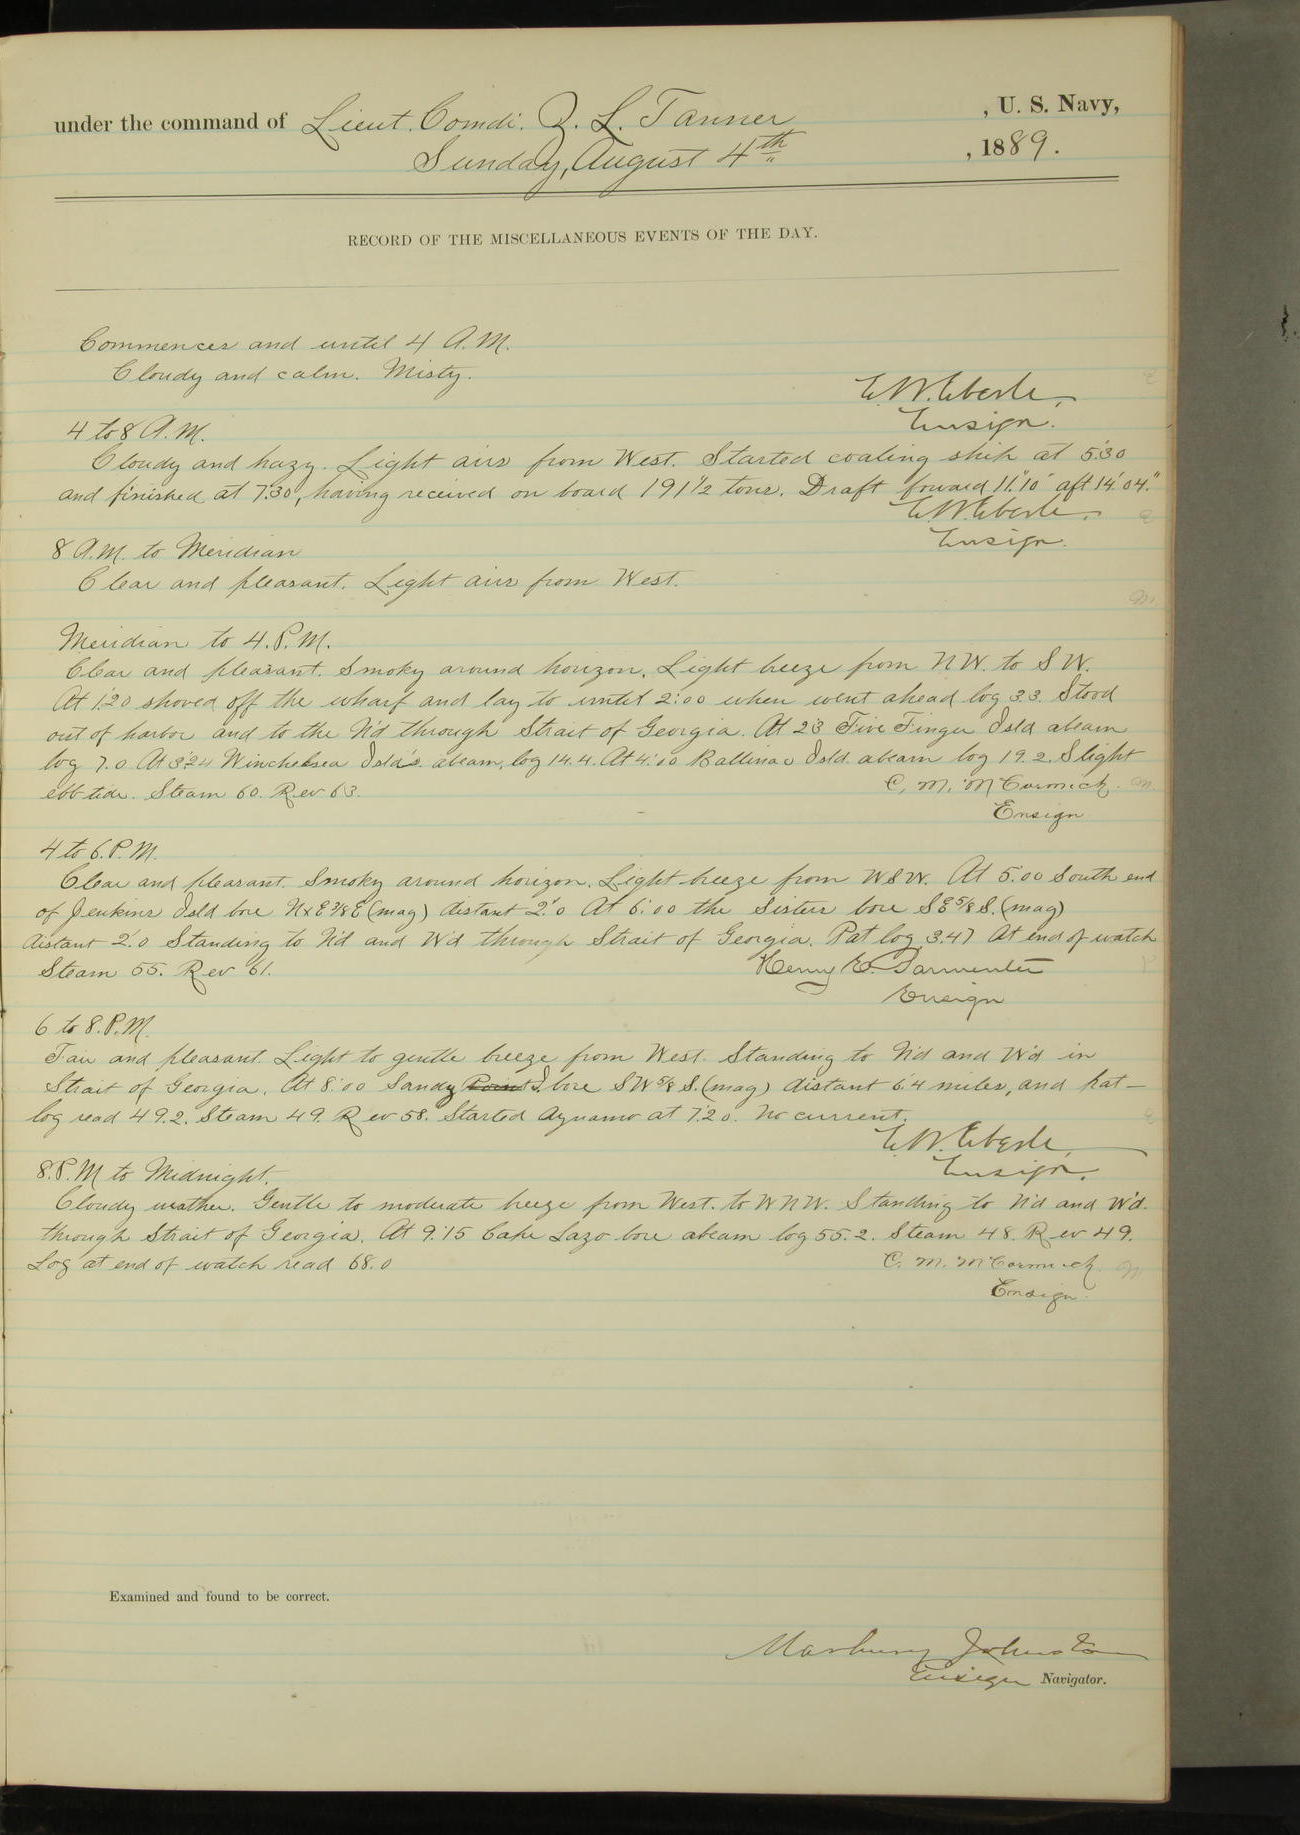 under the command of Lieut. Comdr. Z. L. Tanner , U. S. Navy,
Sunday, August 4th , 1889.
RECORD OF THE MISCELLANEOUS EVENTS OF THE DAY.
Commences and until 4 A.M.
Cloudy and calm. Misty.
E. W. Eberle,
Ensign.
4 to 8 A.M.
Cloudy and hazy. Light airs from West. Started coaling ship at 5:30
and finished at 7:30, having received on board 191 1/2 tons. Draft forward 11.'10" aft 14.'04."
E. W. Eberle.
Ensign.
8 A.M. to Meridian
Clear and pleasant. Light airs from West.
Meridian to 4. P.M.
Clear and pleasant. Smoky around horizon. Light breeze from NW. to SW.
At 1:20 shoved off the wharf and lay to until 2:00 when went ahead log 33. Stood
out of harbor and to the N'd through Strait of Georgia. At 23 Five Finger Isld abeam
log 7.0 At 3:24 Winchelsea Isld's. abeam, log 14.4. At 4:00 Ballinac Isld. abeam log 19.2. Slight
ebb tide. Steam 60. Rev 63.
C. M. McCormick.
Ensign
4 to 6. P.M.
Clear and pleasant. Smoky around horizon. Light breeze from WSW. At 5:00 South end
of Jenkins Isld bore NxE 7/8 E (mag) distant 2.'0 At 6:00 the Sisters bore SE 5/8 S. (mag)
distant 2.'0 Standing to N'd and W'd through Strait of Georgia. Pat log 3.47 At end of watch
Steam 55. Rev 61.
Henry E. Parmenter
Ensign
6 to 8. P.M.
Fair and pleasant. Light to gentle breeze from West. Standing to N'd and W'd in
Strait of Georgia. At 8:00 Sandy Point I. bore SW 5/8 S. (mag) distant 6.4 miles, and pat-
log read 49.2. Steam 49. Rev 58. Started dynamo at 7:20. No current.
E. W. Eberle,
Ensign.
8. P.M to Midnight.
Cloudy weather. Gentle to moderate breeze from West. to WNW. Standing to N'd and W'd.
through Strait of Georgia. At 9:15 Cape Lazo bore abeam log 55.2. Steam 48. Rev 49.
Log at end of watch read 68.0
C. M. McCormick.
Ensign.
Examined and found to be correct.
Marbury Johnston
Ensign Navigator.